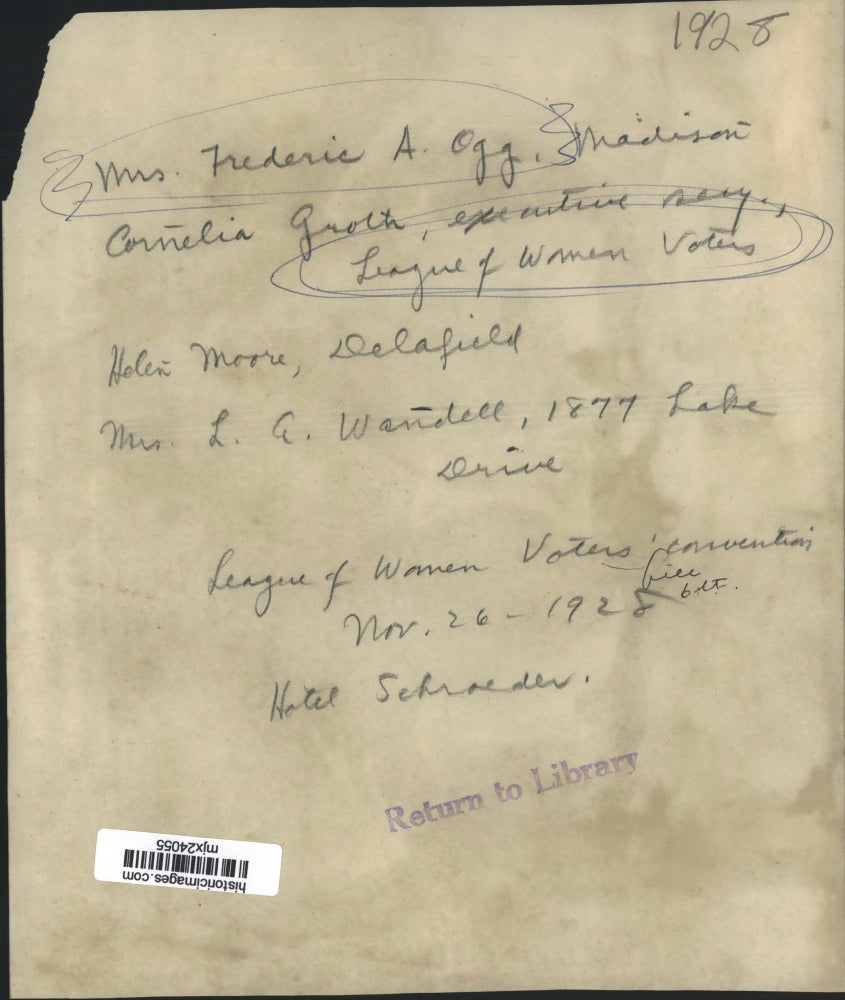 1928
Mrs. Frederic A. Ogg, Madison
Cornelia Groth, executive secy.,
League of Women Voters
Helen Moore, Delafield
Mrs. L. G. Wandell, 1877 Lake
Drive
League of Women Voters' convention
Nov. 26 - 1928
Hotel Schroeder.
Return to Library
historicimages.com
mjx24055